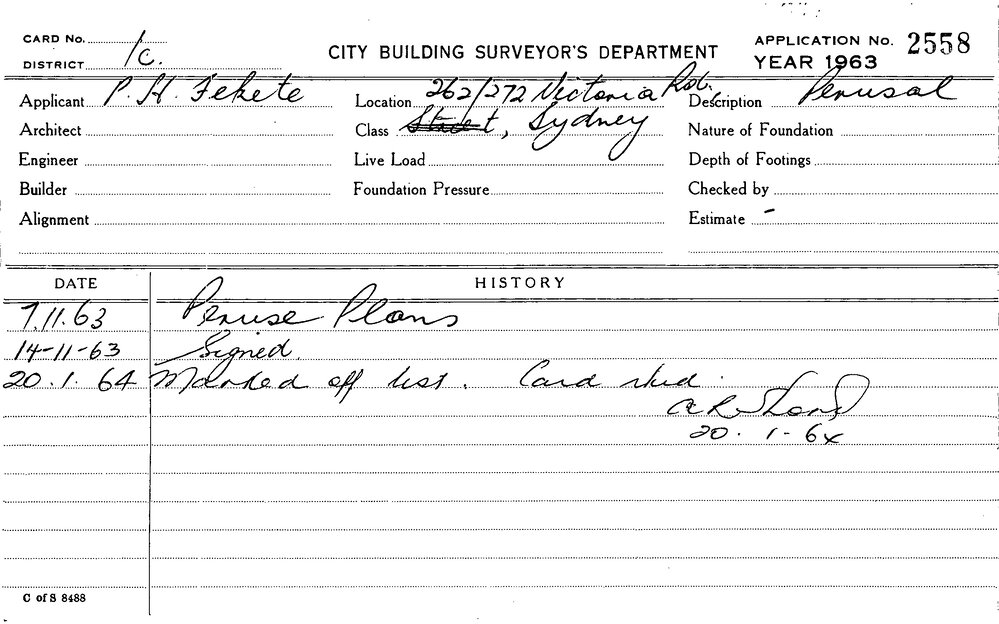 CARD No.
DISTRICT 1c.
CITY BUILDING SURVEYOR'S DEPARTMENT
APPLICATION No. 2558
YEAR 1963
Applicant P. H. Fekete
Location 262/272 Victoria Rd.
Description Perusal
Architect
Class Street, Sydney
Nature of Foundation
Engineer
Live Load
Depth of Footings
Builder
Foundation Pressure
Checked by
Alignment
Estimate -
DATE HISTORY
7.11.63 Peruse Plans
14-11-63 Signed.
20.1.64 Marked off list. Card
20.1-64
C of S 8488